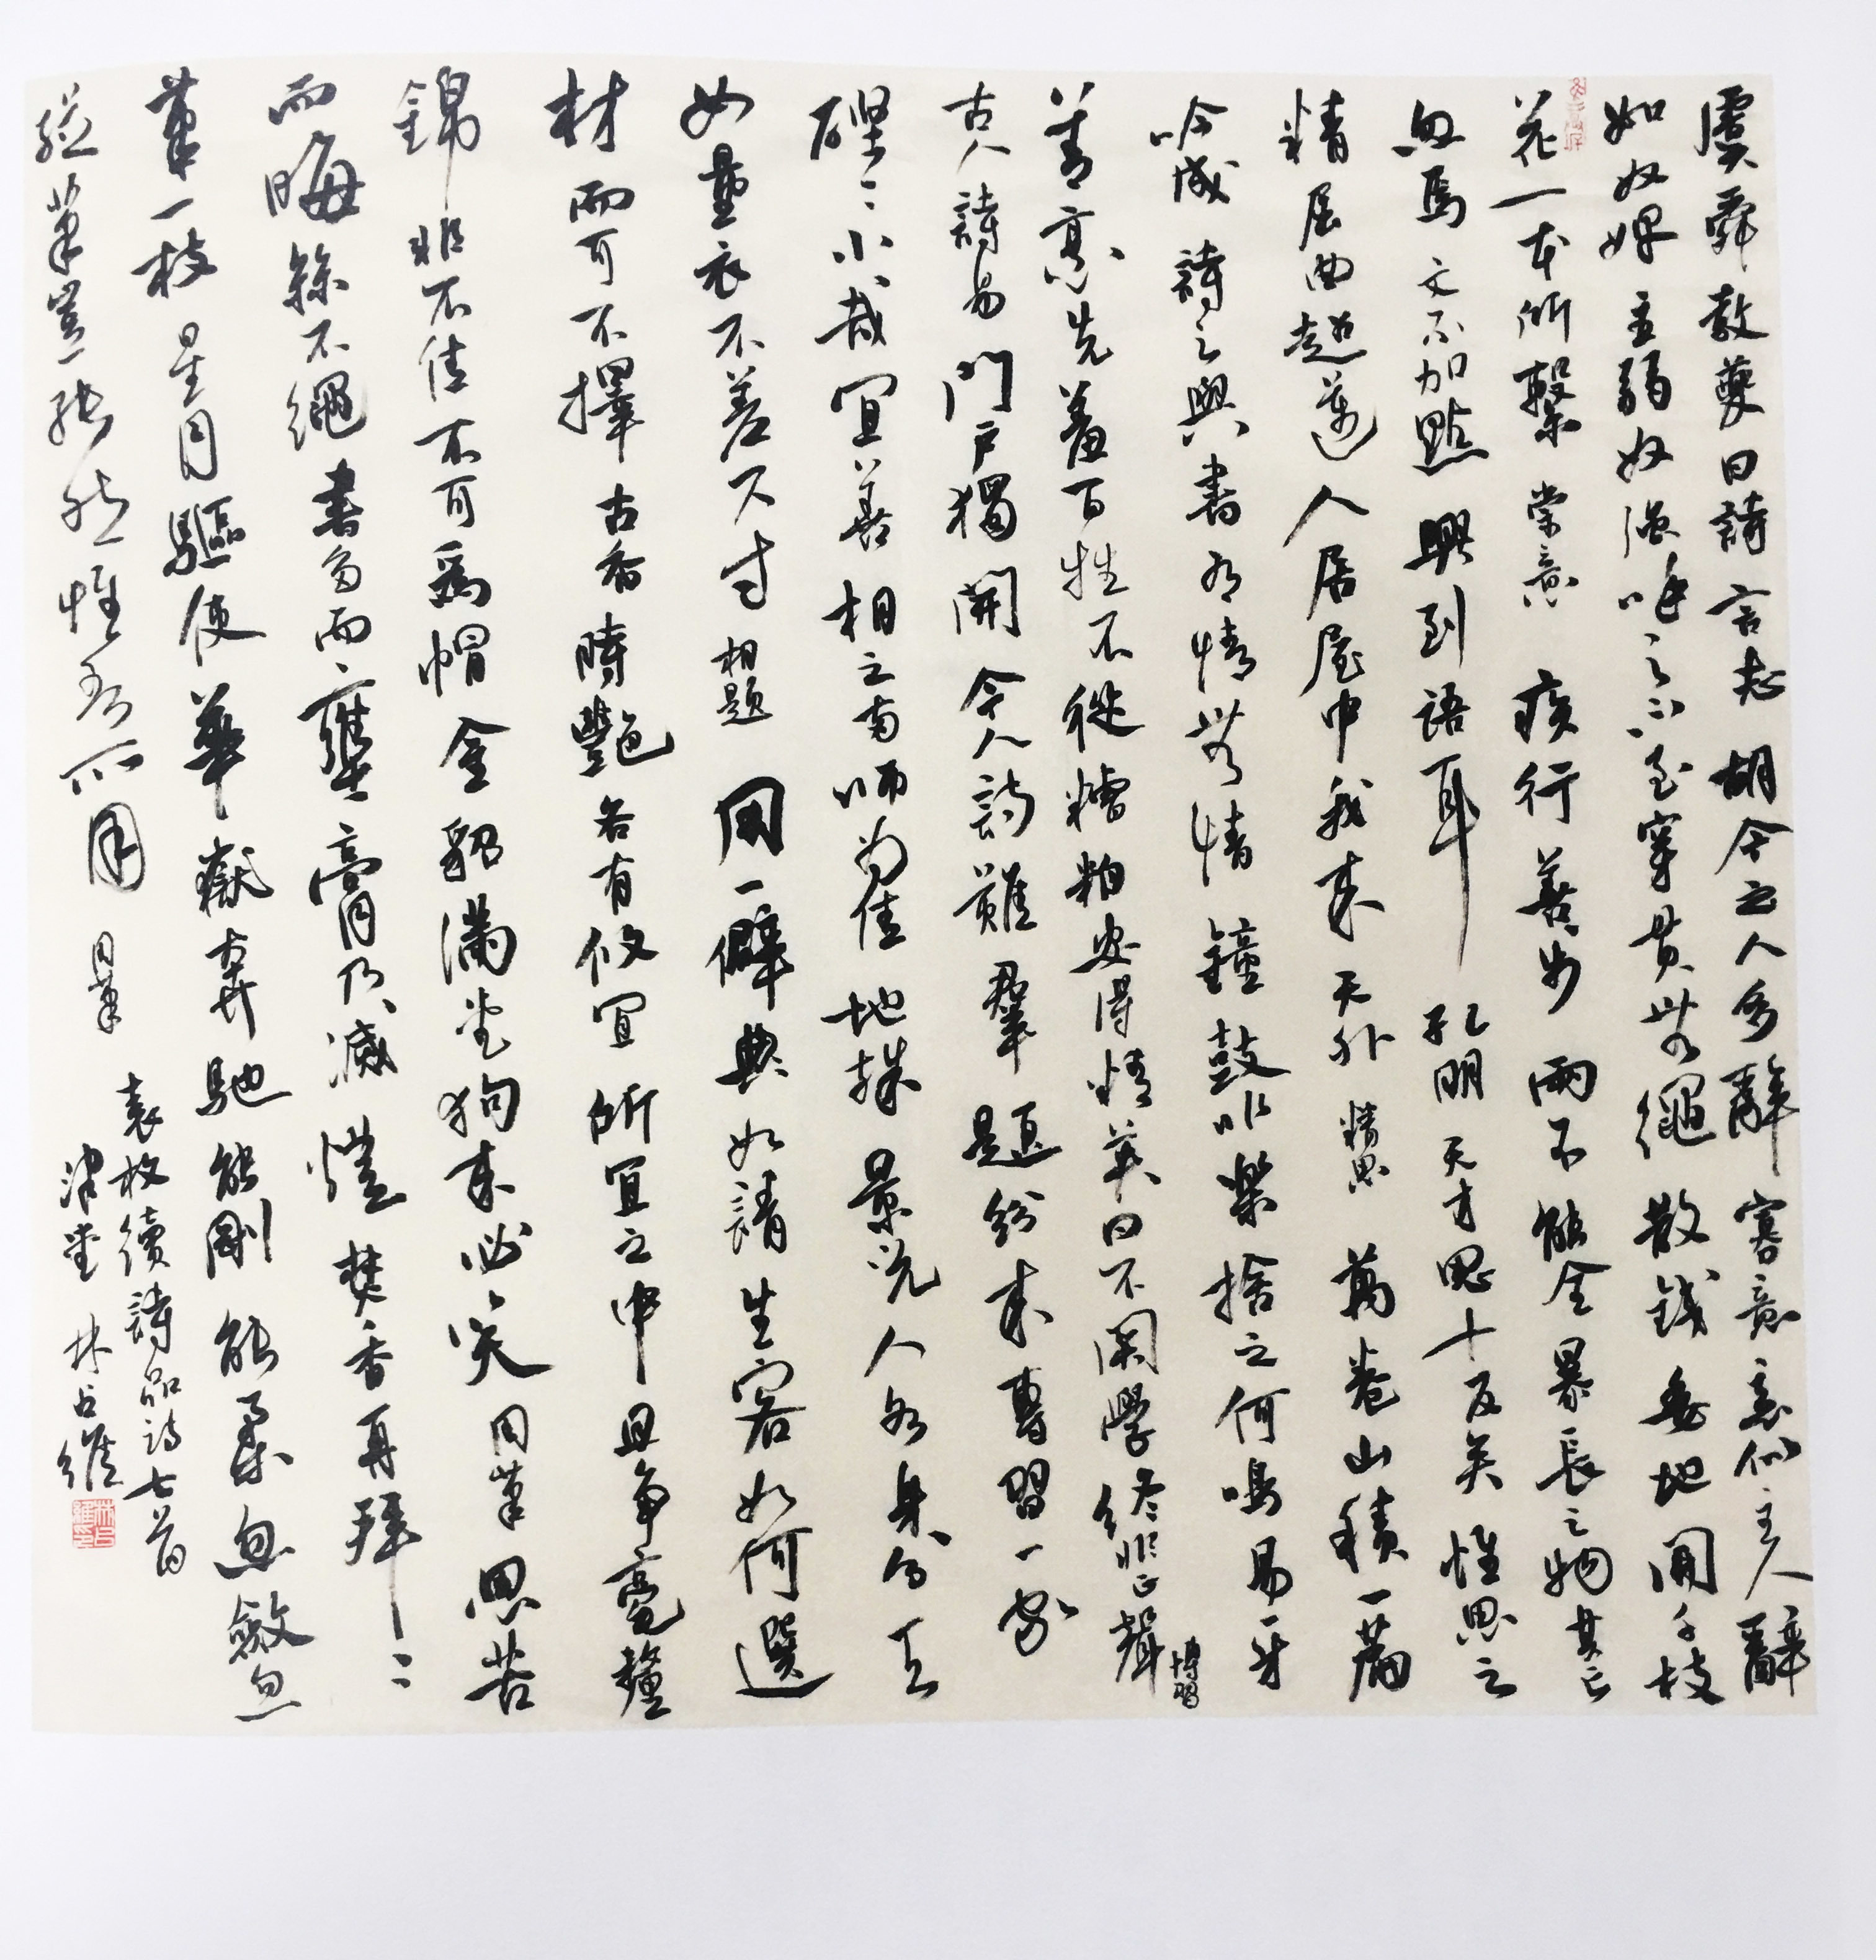 虞舜教夔曰詩言志胡今之人多辭寡意意似主人辭
如奴婢主弱奴强呼之不至穿貫無繩散錢委地開千枝
花一本所繫 崇意 疾行善步兩不能全暴長之物其亡
忽焉文不加點興到語耳孔明天才思十反矣惟思之
精屈曲超邁人居屋中我來天外 精思 萬卷山積一篇
吟成詩之與書有情無情鐘鼓非樂捨之何鳴易牙
善烹先羞百牲不從糟粕安得精英曰不関學終非正聲 博習
古人詩易門戶獨開今人詩難羣題紛來專習一家
硜〻小哉宜善相之多師為佳地殊景光人各身分天
女量衣不差尺寸 相題 用一僻典如請生客如何選
材而可不擇古香時艷各有攸宜所宜之中且爭毫釐
錦非不佳不可為帽金貂滿堂狗來必笑 用筆 思苦
而晦絲不繩書多而壅膏乃滅燈焚香再拜〻
筆一枝星月驅使華嶽奔馳能剛能柔忽斂忽
縱筆豈能然惟吾所用 用筆
袁枚續詩品詩七首
津堂 林占維